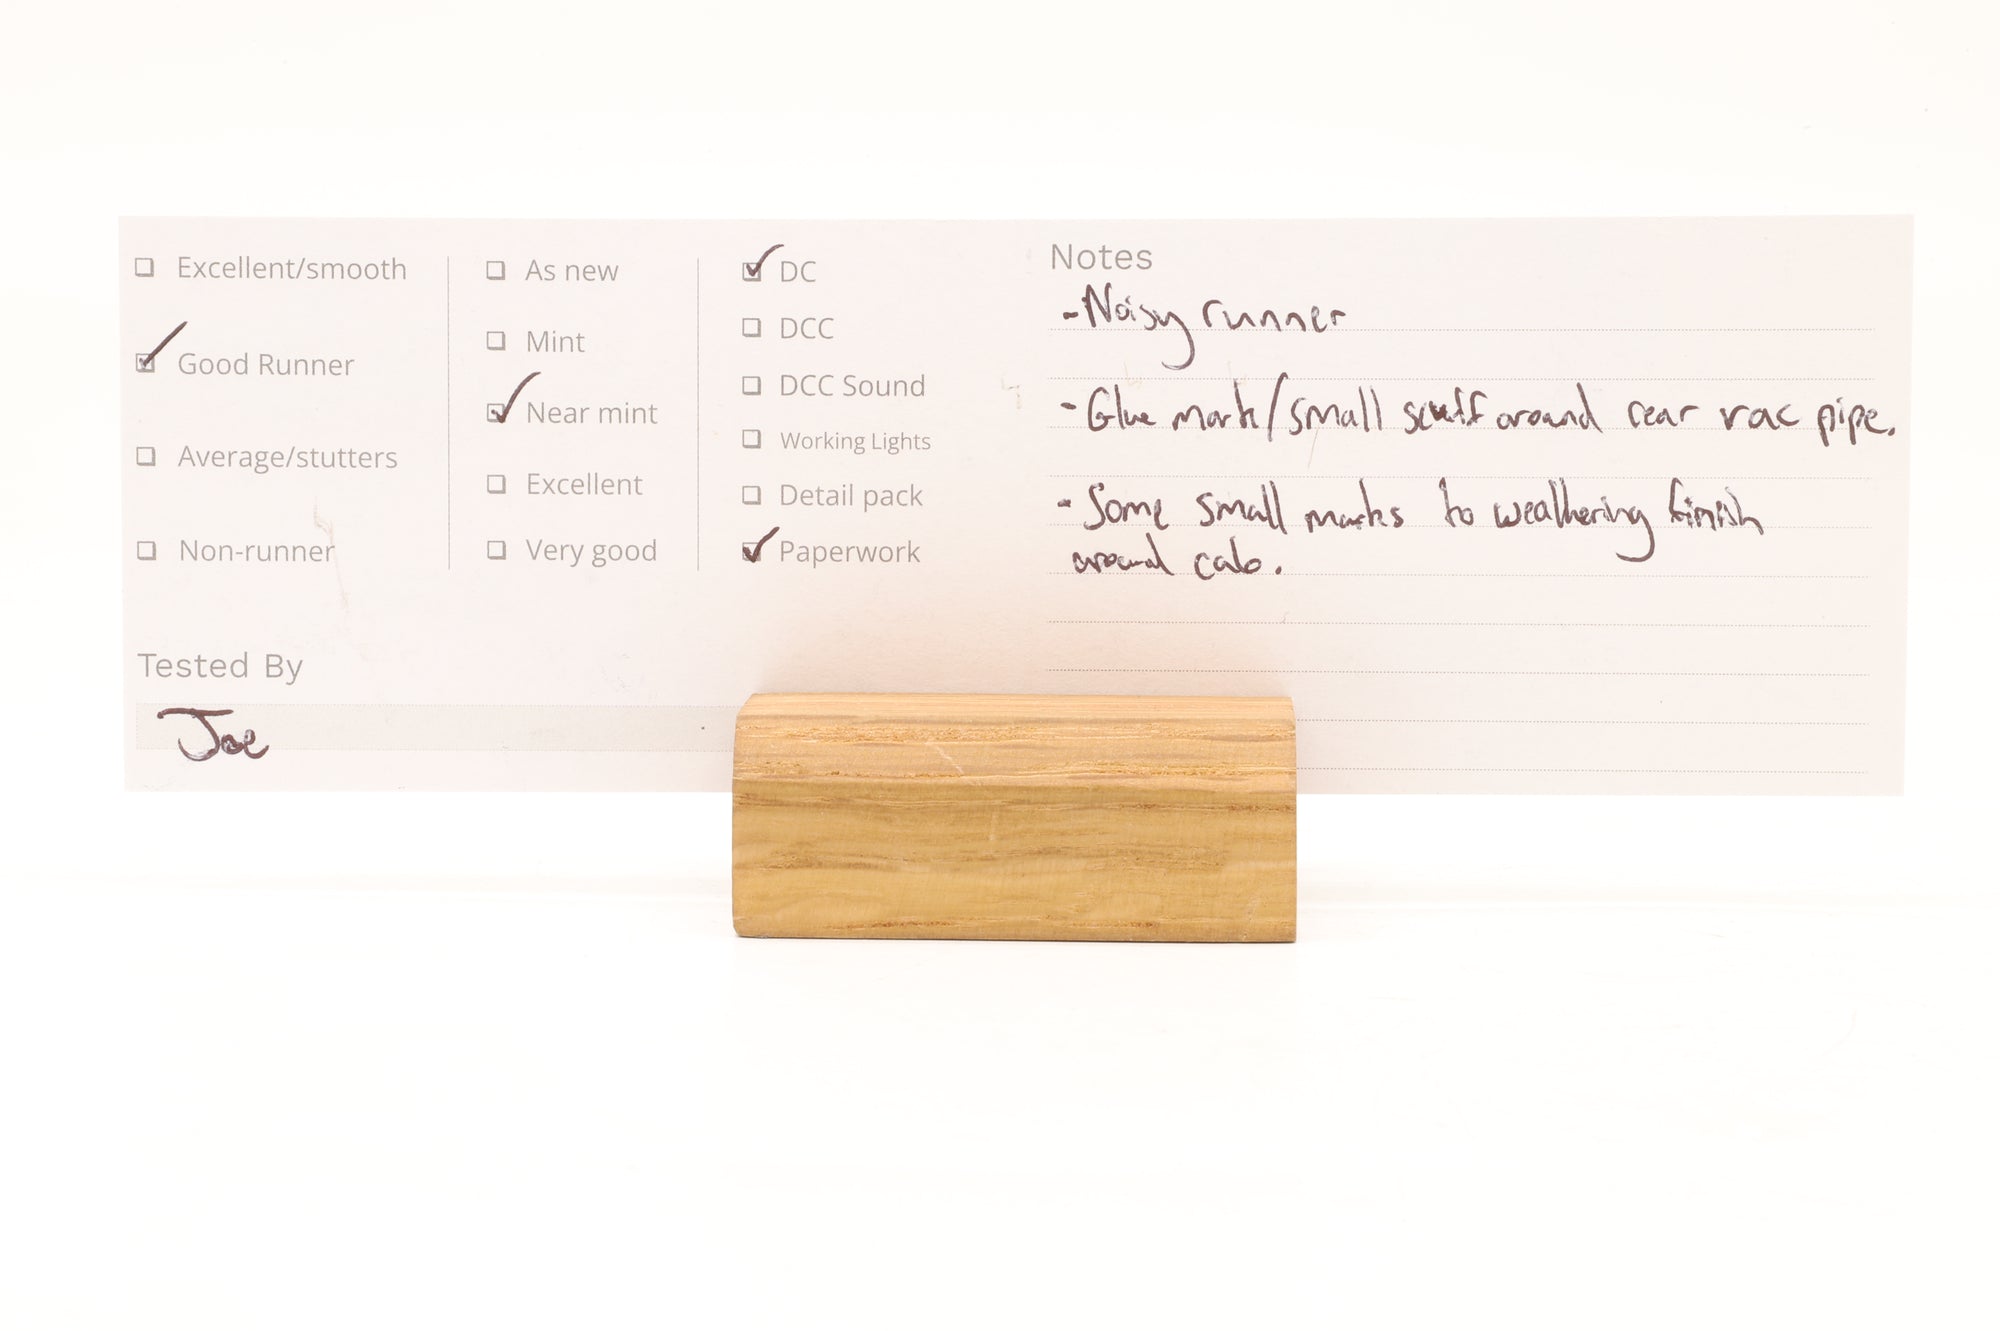 Excellent/smooth
Good Runner
Average/stutters
Non-runner
As new
Mint
Near mint
Excellent
Very good
DC
DCC
DCC Sound
Working Lights
Detail pack
Paperwork
Tested By
Joe
Notes
- Noisy runner
- Glue mark/small scuff around rear vac pipe.
- Some small marks to weathering finish
around cab.